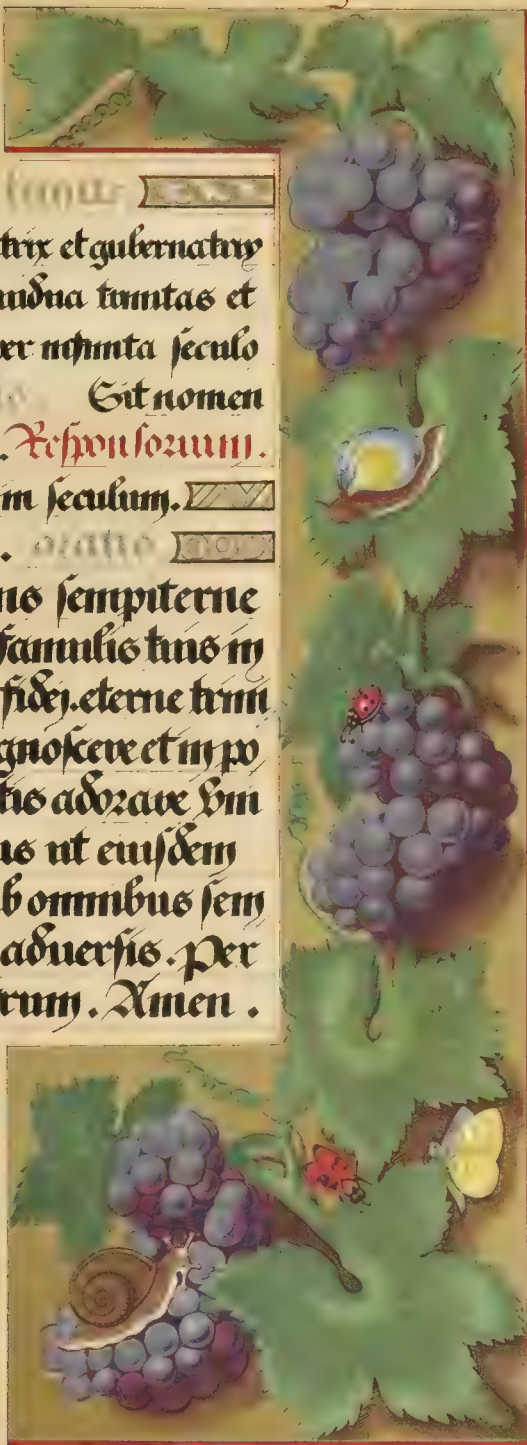 trix et gubernatrix
uidua trinitas et
er infinita seculo
Sit nomen
. Responsorium.
in seculum.
. oratio
ns sempiterne
famulis tuis in
fidei. eterne trini
gnoscere et in po
tis adorare vni
us ut eiusdem
b omnibus sem
aduersis. Per
trum. Amen .